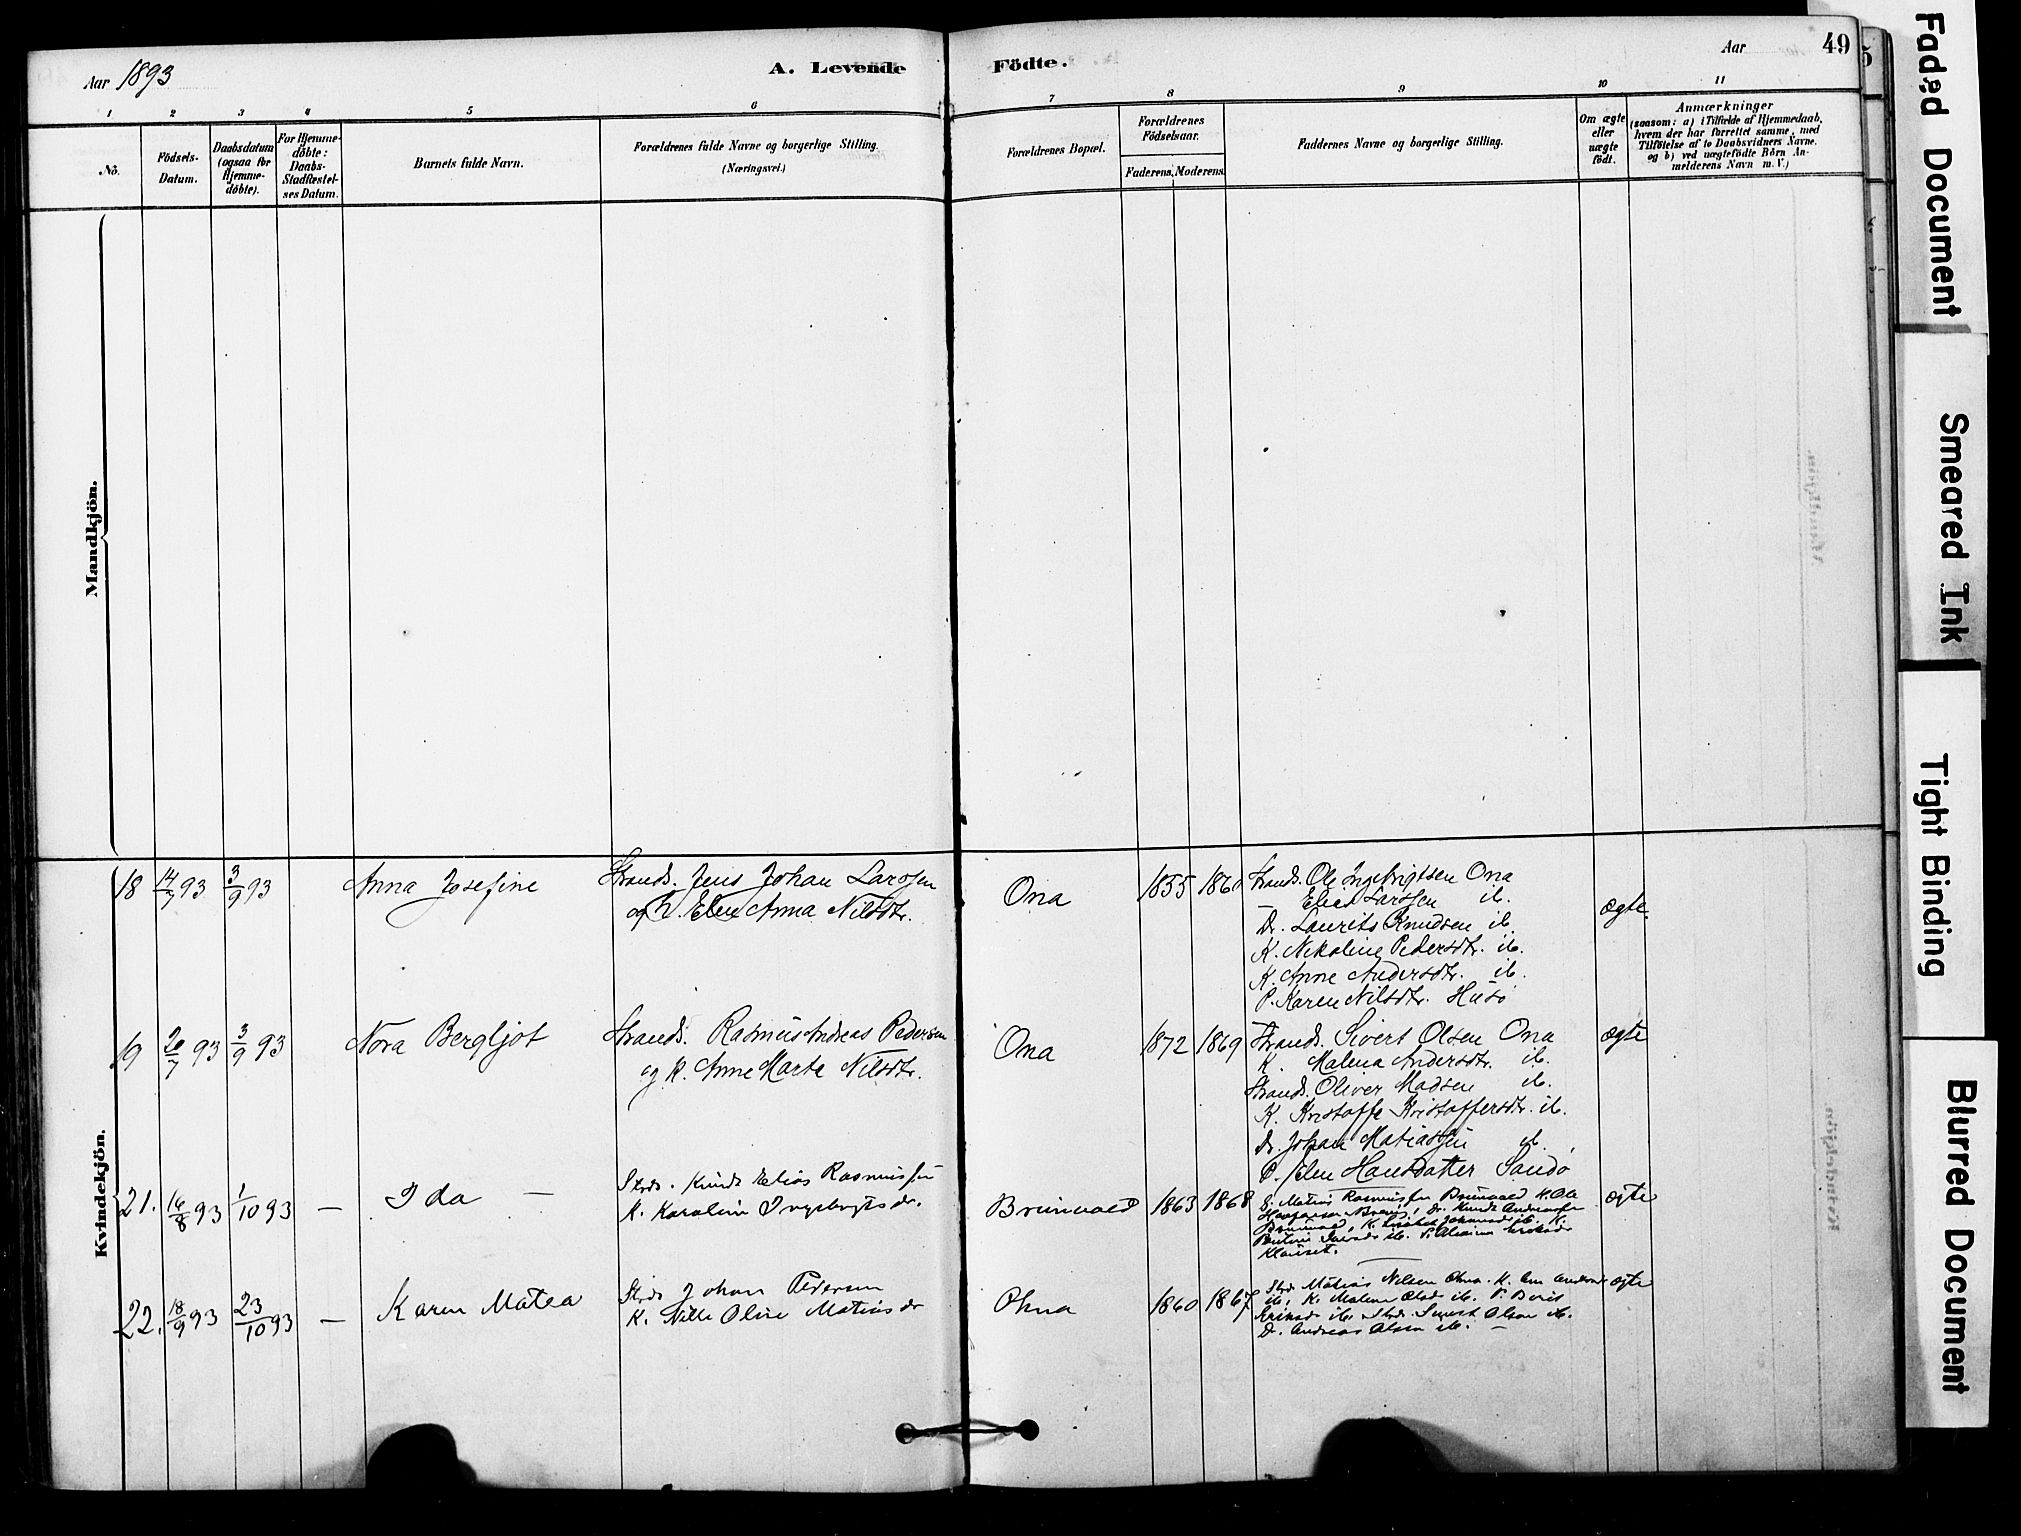 Aar 1893
A. Levende
Födte.
Aar
49
1
2
3
4
5
6
7
8
9
10
11
No.
Födsels-
Datum.
Daabsdatum
(ogsaa for
Hjemme-
döbte).
For Hjemme-
döbte:
Daabs-
Stadfæstel-
ses Datum.
Barnets fulde Navn.
Forældrenes fulde Navne og borgerlige Stilling.
(Næringsvei.)
Forældrenes Bopæl.
Forældrenes
Födselsaar.
Faderens.
Moderens.
Faddernes Navne og borgerlige Stilling.
Om ægte
eller
uægte
födt.
Anmærkninger
(saasom: a) i Tilfælde af Hjemmedaab,
hvem der har forrettet samme, med
Tilföielse af to Daabsvidners Navne.
og b) ved uægtefödte Börn An-
melderens Navn m. V.)
Mandkjön.
Kvindekjön.
18 14/7 93 3/9 93 Anna Josefine
Strands. Jens Johan Larssen
og K. Elen Anna Nilsdtr.
Ona 1855 1860
Strands. Ole Ingebrigtsen Ona
Elias Larssen ib.
Dr. Laurits Knudsen ib.
K. Nikoline Pedersdtr. ib.
K. Anne Andersdtr. ib.
P. Karen Nilsdtr. Husö
ægte
19 20/7 93 3/9 93 Nora Bergljot
Strands. Rasmus Andreas Pedersen
og K. Anne Marta Nilsdtr.
Ona 1872 1869
Strands. Sivert Olsen Ona
K. Malena Andersdtr. ib.
Strands. Oliver Madsen ib.
K. Kristoffa Kristoffersdtr. ib.
Dr. Johan Matiassen ib.
P. Elen Hansdatter Sandö
ægte
21. 16/8 93 1/10 93 — Ida —
Strds. Knud Elias Rasmussen
K. Karoline Ingebrigtsdr.
Brunvold 1863 1868
G. Matias Rasmussen Brunvold K. Ole
Dr. Knud Andreassen
Brunvold, K. Johannsdr ib. K.
ib. P.
Klauset.
ægte
22. 18/9 93 23/10 93 — Karen Matea
Strds Johan Pedersen
K. Nille Oline Matiasdr
Ohna 1860 1867
Strds Matias Nilsen Ohna. K. Ane Andersdr
ib, K. Malene Olsdr ib. P. Berit
Eriksdr ib. Strds. Sivert Olsen ib.
Dr. Andreas Olsen ib. —
ægte
Faded Document
Smeared Ink
Tight Binding
Blurred Document